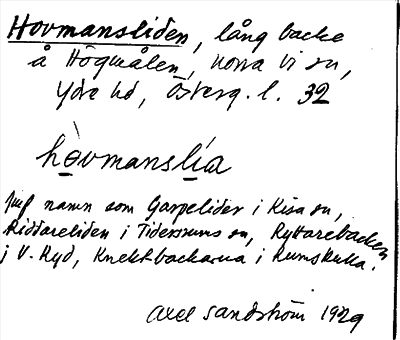 Hovmansliden, lång backe
å Högmålen, norra Vi sn,
Ydre hd, Österg. l. 32
hòvmanslía
Jmf namn som Garpelider i Kisa sn,
Riddareliden i Tidersrums sn, Ryttarebacken
i V. Ryd, Knektbackarna i Rumskulla.
Axel Sandström 1929